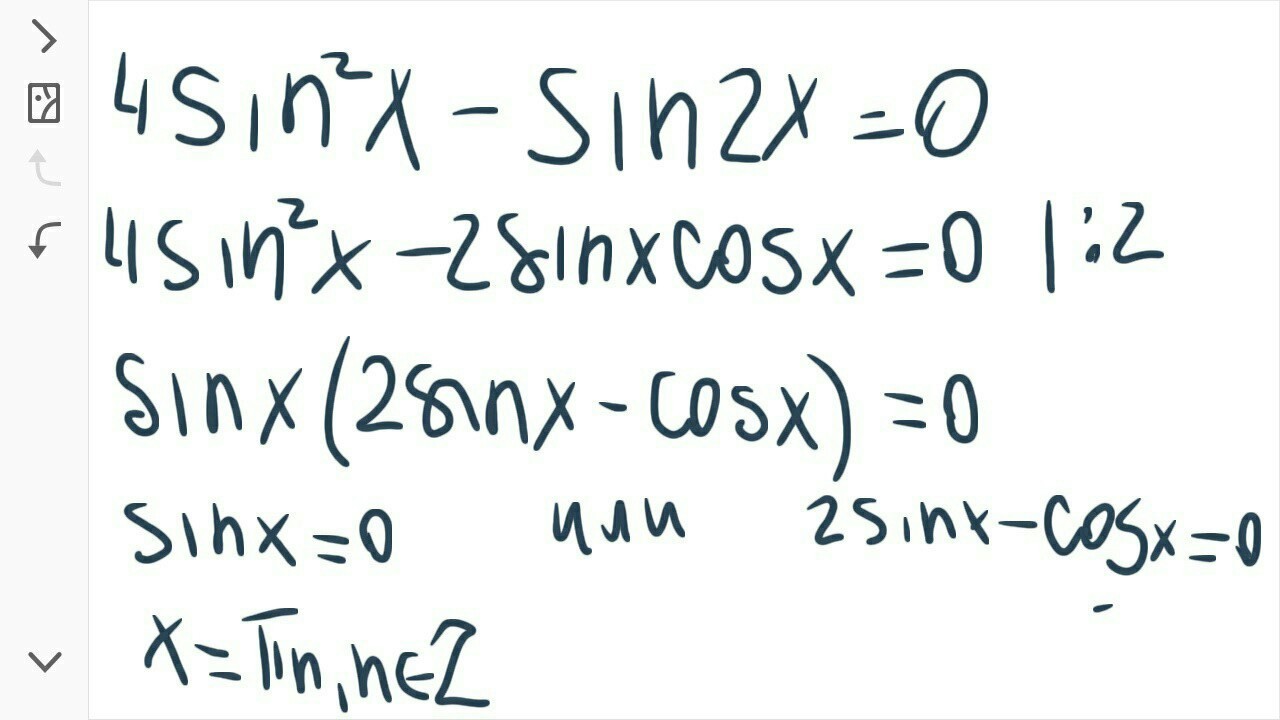 4sin²x - sin2x = 0
4sin²x - 2sinxcosx = 0 | :2
sinx(2sinx - cosx) = 0
sinx = 0 или 2sinx - cosx = 0
x = πn, n∈Z